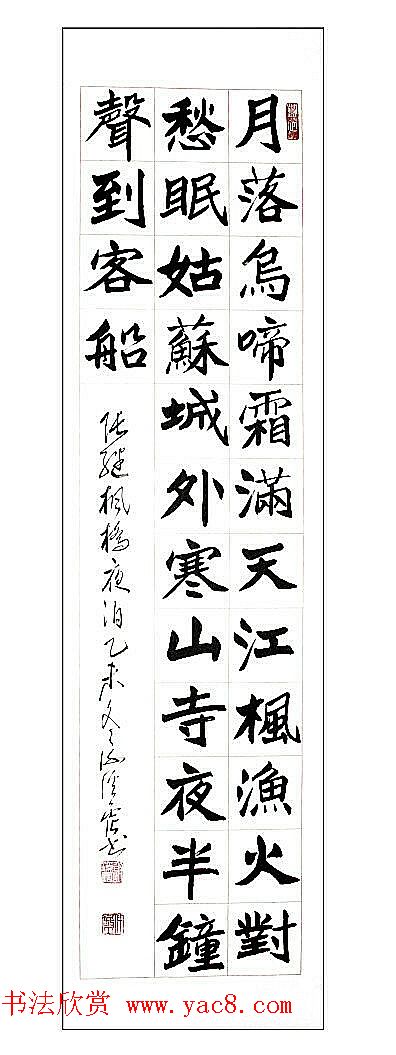 月落烏啼霜滿天江楓漁火對
愁眠姑蘇城外寒山寺夜半鐘
聲到客船
张继枫橋夜泊乙未冬
书法欣赏 www.yac8.com